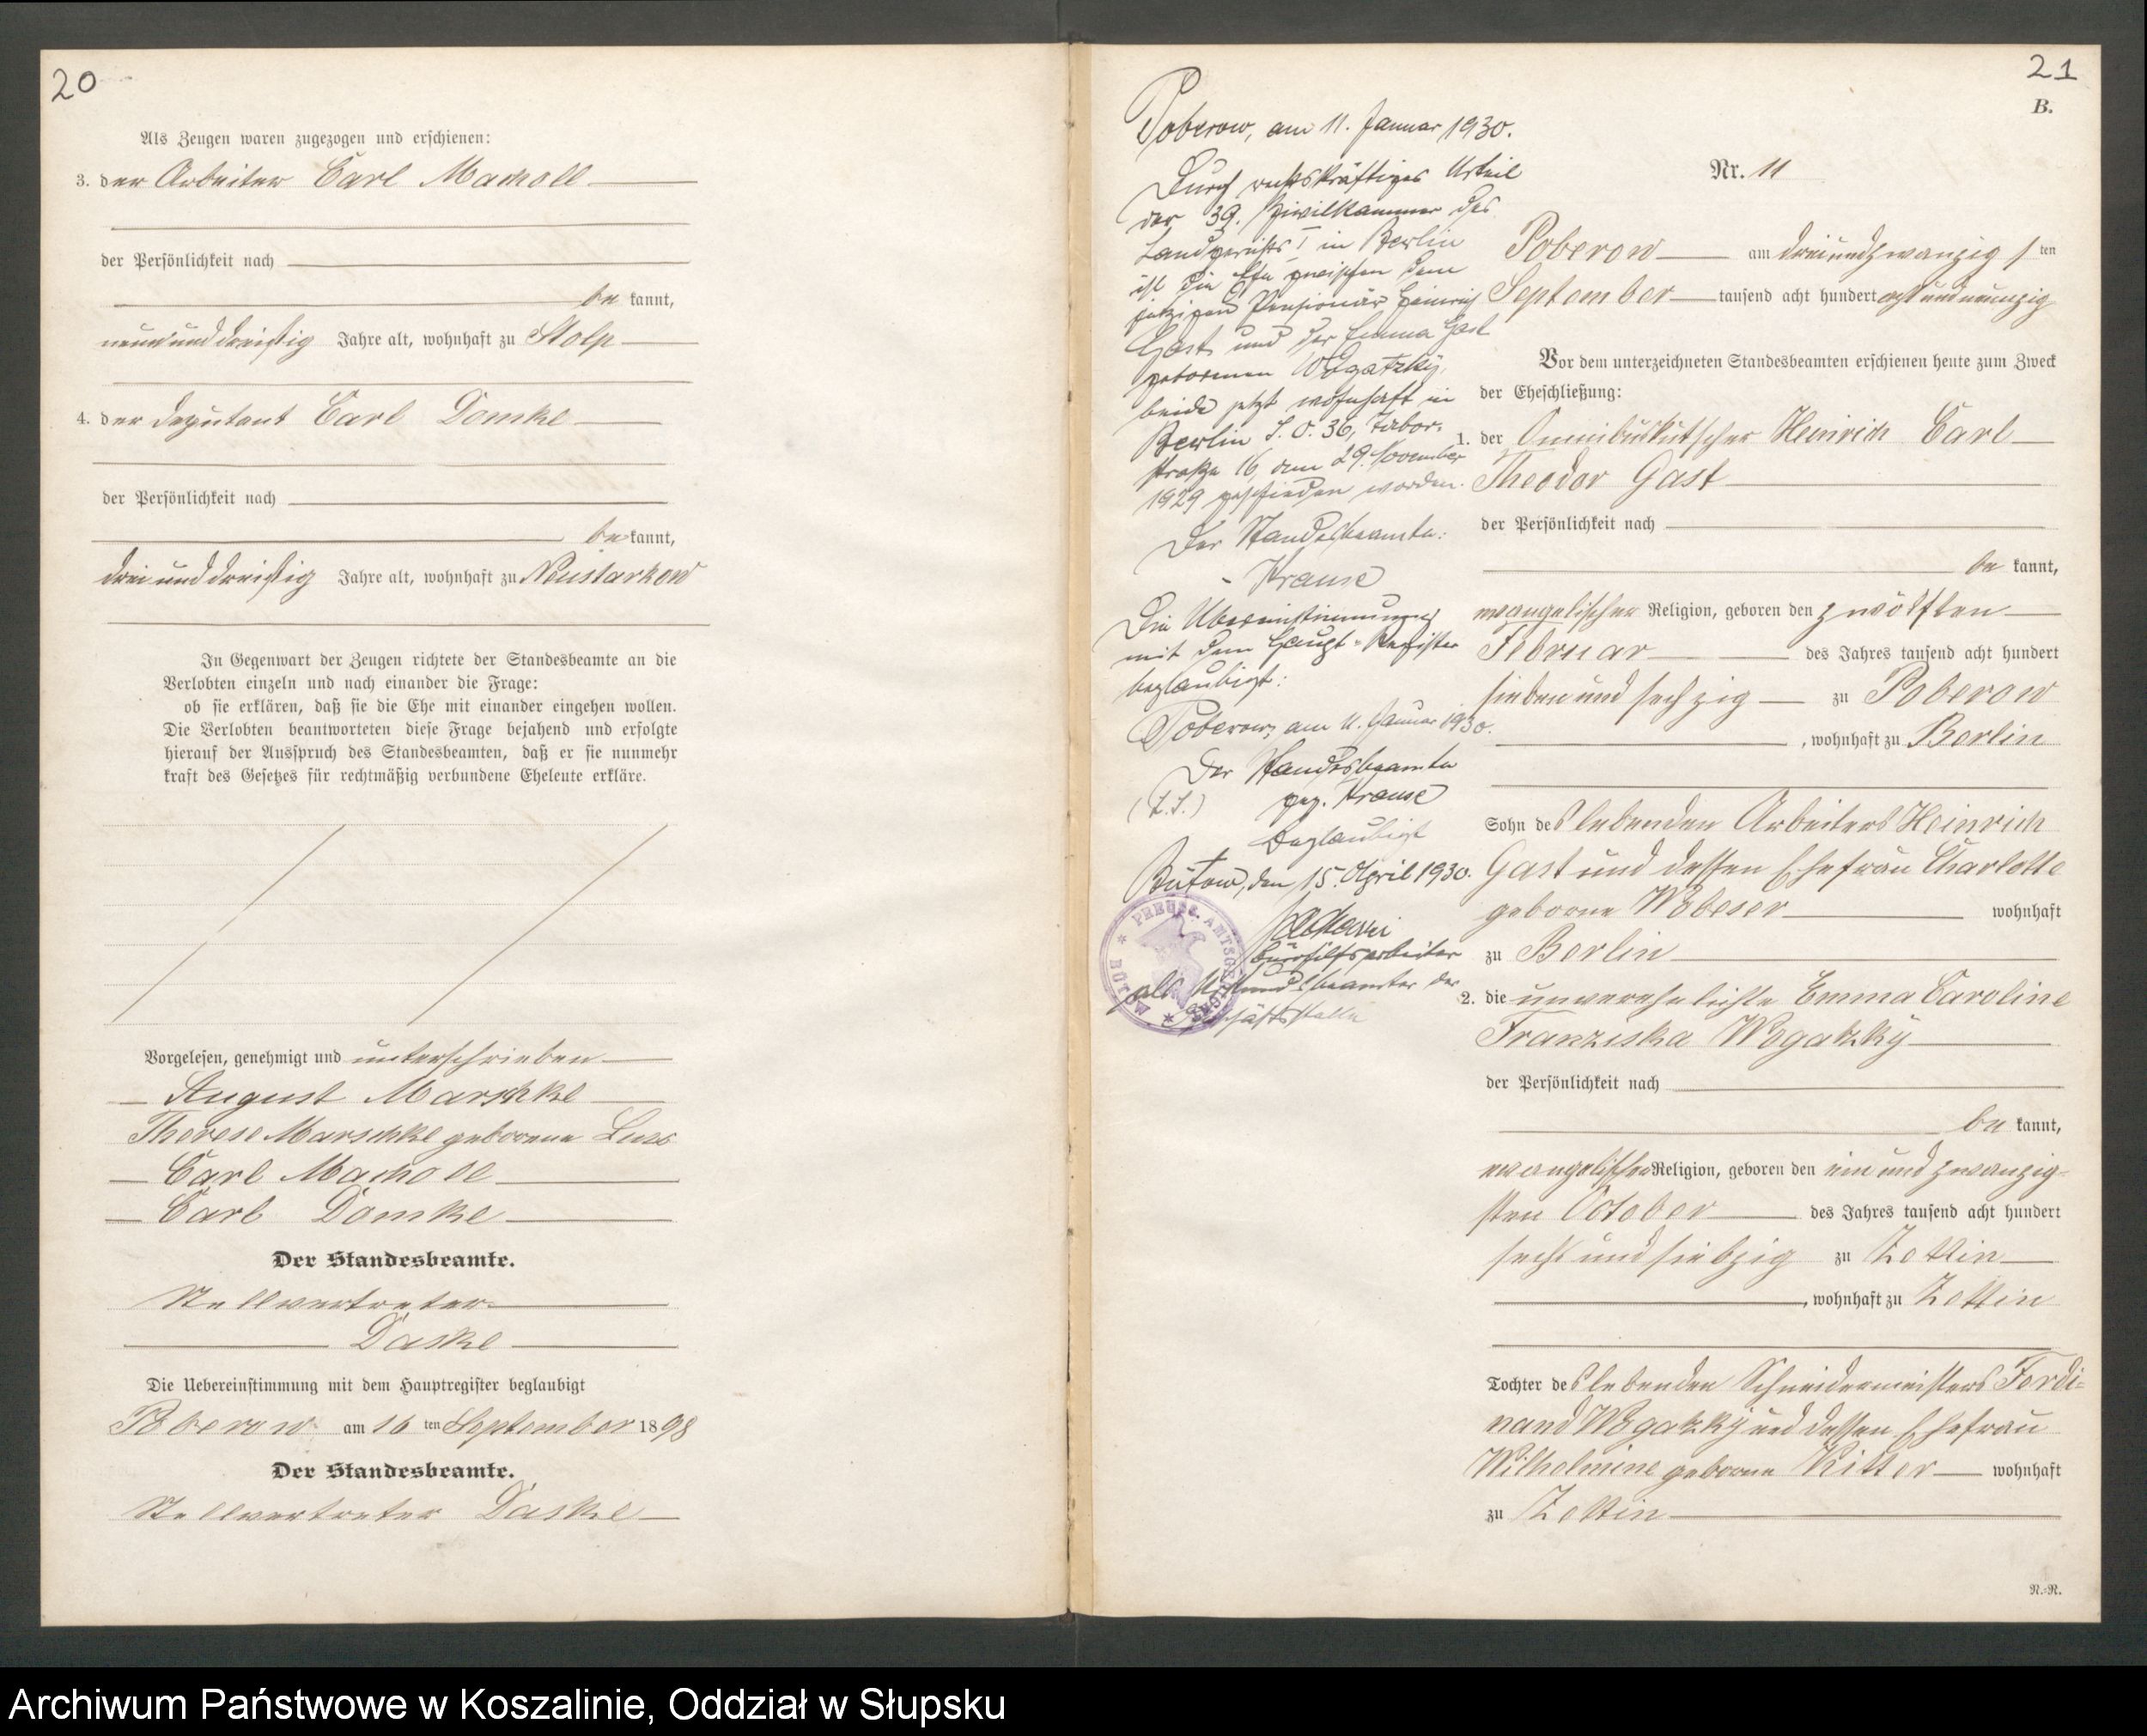 20
Als Zeugen waren zugezogen und erschienen:
3. der Arbeiter Carl Machott
der Persönlichkeit nach
be kannt,
neun und dreißig Jahre alt, wohnhaft zu Stolp
4. der Deputant Carl Domke
der Persönlichkeit nach
be kannt,
drei und dreißig Jahre alt, wohnhaft zu Neustarkow
In Gegenwart der Zeugen richtete der Standesbeamte an die
Verlobten einzeln und nach einander die Frage:
ob sie erklären, daß sie die Ehe mit einander eingehen wollen.
Die Verlobten beantworteten diese Frage bejahend und erfolgte
hierauf der Ausspruch des Standesbeamten, daß er sie nunmehr
kraft des Gesetzes für rechtmäßig verbundene Eheleute erkläre.
Vorgelesen, genehmigt und unterschrieben
August Marschke
Therese Marschke geborene
Carl Machott
Carl Domke
Der Standesbeamte.
Stellvertreter
Daske
Die Uebereinstimmung mit dem Hauptregister beglaubigt
Poberow am 16 ten September 1898
Der Standesbeamte.
Stellvertreter Daske
21
B.
Poberow, am 11. Januar 1930.
Durch rechtskräftiges Urteil
der 39. Zivilkammer des
Landgerichts I in Berlin
ist die Ehe zwischen dem
jetzigen Pensionär Heinrich
Gast und der Emma Gast
geborenen Wogatzky,
beide jetzt wohnhaft in
Berlin S.O. 36, Tabor-
straße 16, am 29. November
1929 geschieden worden.
Der Standesbeamte:
Krause
Die Übereinstimmung
mit dem Haupt-Register
beglaubigt:
Poberow, am 11. Januar 1930.
Der Standesbeamte
(L.S.) gez. Krause
Beglaubigt
Bütow, den 15. April 1930.
Bürohilfsarbeiter
als Urkundsbeamter der
Geschäftsstelle
PREUSS. AMTSGERICHT * BÜTOW *
Nr. 11
Poberow am dreiundzwanzigs ten
September tausend acht hundert acht und neunzig
Vor dem unterzeichneten Standesbeamten erschienen heute zum Zweck
der Eheschließung:
1. der Omnibuskutscher Heinrich Carl
Theodor Gast
der Persönlichkeit nach
be kannt,
evangelischer Religion, geboren den zwölften
Februar des Jahres tausend acht hundert
sieben und sechzig zu Poberow
, wohnhaft zu Berlin
Sohn des lebenden Arbeiters Heinrich
Gast und dessen Ehefrau Charlotte
geborne Wobeser wohnhaft
zu Berlin
2. die unverehelichte Emma Caroline
Franziska Wogatzky
der Persönlichkeit nach
be kannt,
evangelischer Religion, geboren den ein und zwanzig-
sten October des Jahres tausend acht hundert
sechs und siebzig zu Zettin
, wohnhaft zu Zettin
Tochter des lebenden Schneidermeisters Ferdi-
nand Wogatzky und dessen Ehefrau
Wilhelmine geborne Ritter wohnhaft
zu Zettin
N.-R.
Archiwum Państwowe w Koszalinie, Oddział w Słupsku